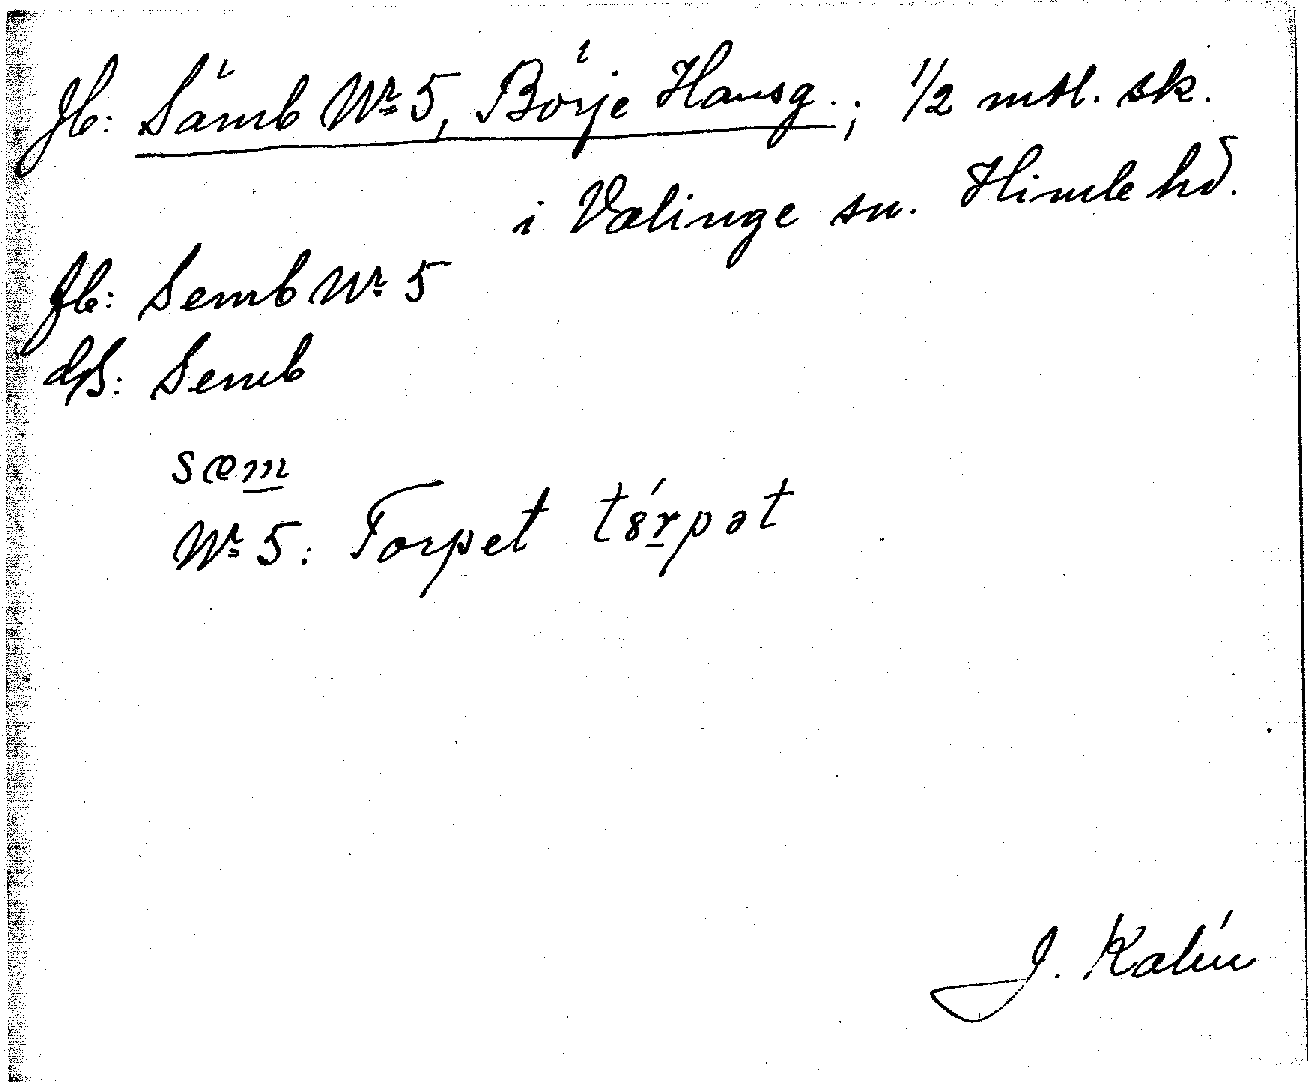 Jb: Sämb Nr 5, Börje Hansg.; 1/2 mtl. sk.
i Valinge sn. Himle hd.
Jb: Semb Nr 5
ds: Semb
sæm
Nr 5: Torpet tórpət
J. Kalén